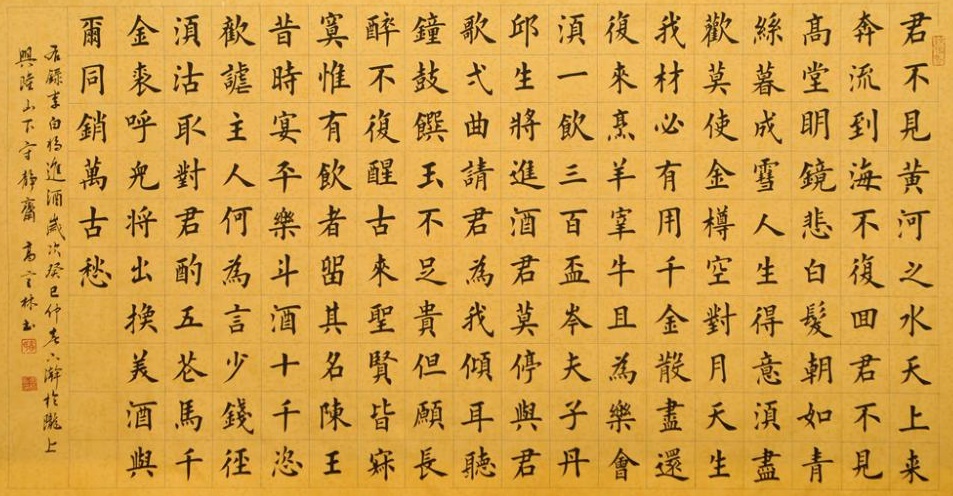 君不見黃河之水天上来
奔流到海不復囬君不見
髙堂眀鏡悲白髮朝如青
絲暮成雪人生得意須盡
歡莫使金樽空對月天生
我材必有用千金散盡還
復來烹羊宰牛且為樂會
須一飲三百盃岑夫子丹
邱生將進酒君莫停與君
歌弌曲請君為我傾耳聽
鐘鼓饌玉不足貴但願長
醉不復醒古來聖賢皆寂
寞惟有飲者留其名陳王
昔時宴平樂斗酒十千恣
歡謔主人何為言少錢徑
須沽取對君酌五花馬千
金裘呼兒将出換美酒與
爾同銷萬古愁
右錄李白將進酒歲次癸巳仲春於隴上
興隆山下守靜齋 高林書